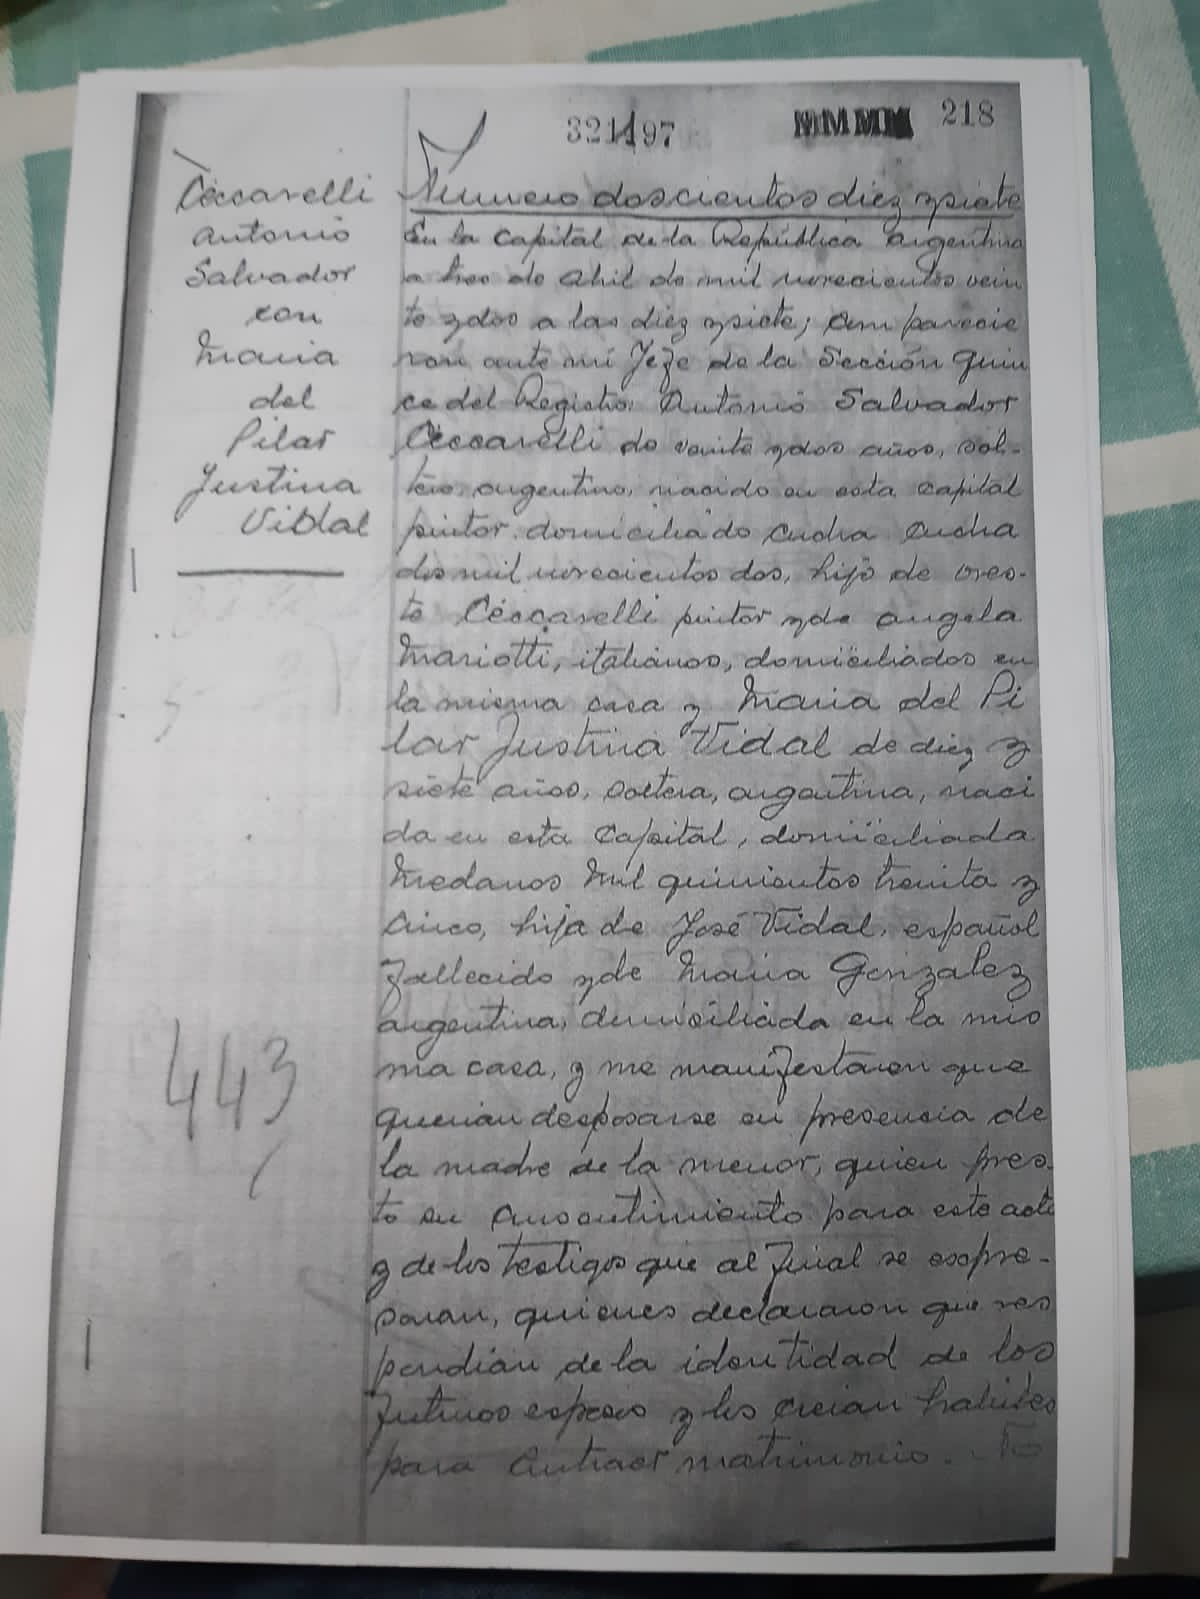 321497
218
Ceccarelli
Antonio
Salvador
con
Maria
del
Pilar
Justina
Vidal
443
Numero doscientos diez y siete
En la Capital de la República Argentina
a tres de Abril de mil novecientos vein
te y dos a las diez y siete; comparecie
ron ante mí Jefe de la Sección quin
ce del Registro: Antonio Salvador
Ceccarelli de veinte y dos años, sol-
tero, argentino, nacido en esta capital
pintor, domiciliado Cucha Cucha
dos mil novecientos dos, hijo de Ores-
te Ceccarelli pintor y de Angela
Mariotti, italianos, domiciliados en
la misma casa y Maria del Pi
lar Justina Vidal de diez y
siete años, soltera, argentina, naci
da en esta Capital, domiciliada
Medanos mil quinientos treinta y
cinco, hija de José Vidal, español
fallecido y de Maria Gonzalez
argentina, domiciliada en la mis
ma casa, y me manifestaron que
querian desposarse en presencia de
la madre de la menor, quien pres-
tó su consentimiento para este acto
y de los testigos que al final se expre-
saran, quienes declararon que res
pondian de la identidad de los
futuros esposos y los creian habiles
para contraer matrimonio.